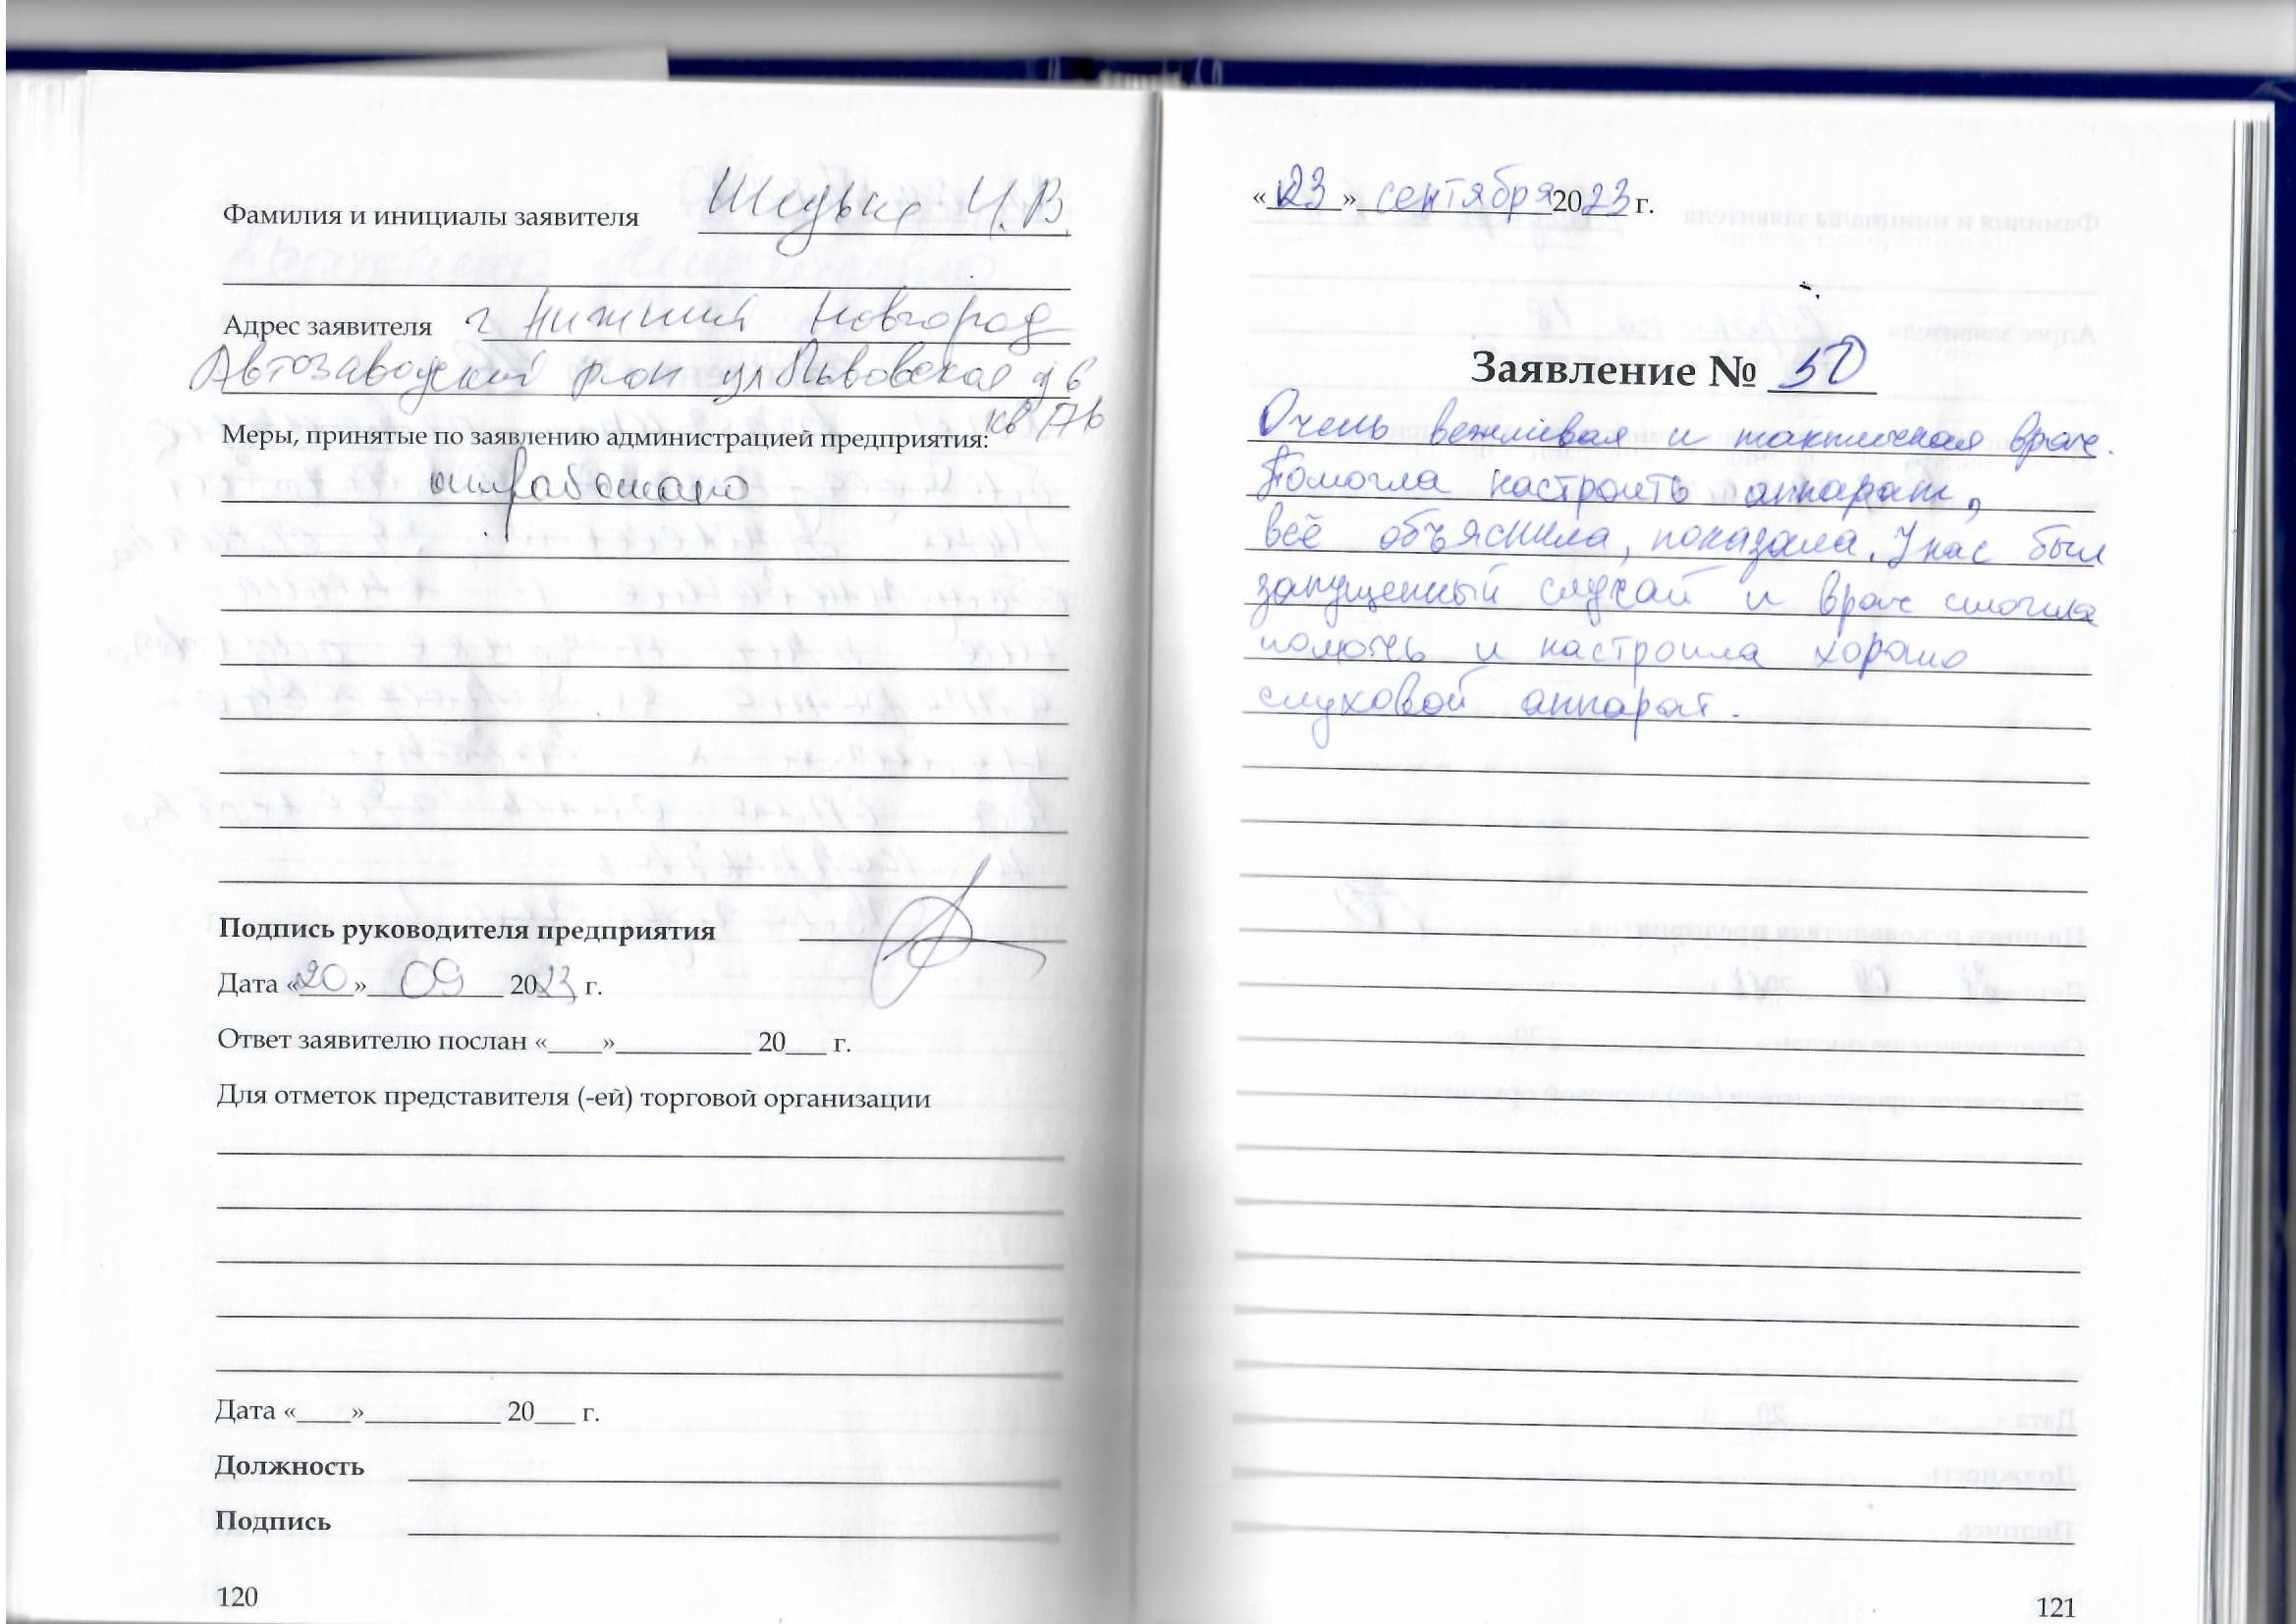 Фамилия и инициалы заявителя И.В.
Адрес заявителя г Нижний Новгород
Автозаводский р-он ул Львовская д 6
кв 176
Меры, принятые по заявлению администрацией предприятия:
отработано
Подпись руководителя предприятия
Дата «20» 09 2023 г.
Ответ заявителю послан «____»__________ 20___ г.
Для отметок представителя (-ей) торговой организации
Дата «____»__________ 20___ г.
Должность
Подпись
120
«23» сентября 2023 г.
Заявление № 50
Очень вежливая и тактичная врач.
Помогла настроить аппарат,
всё объяснила, показала. У нас был
запущенный случай и врач смогла
помочь и настроила хорошо
слуховой аппарат.
121